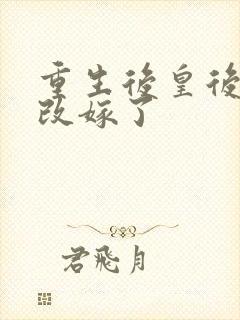 重生後皇後
改嫁了
君飛月